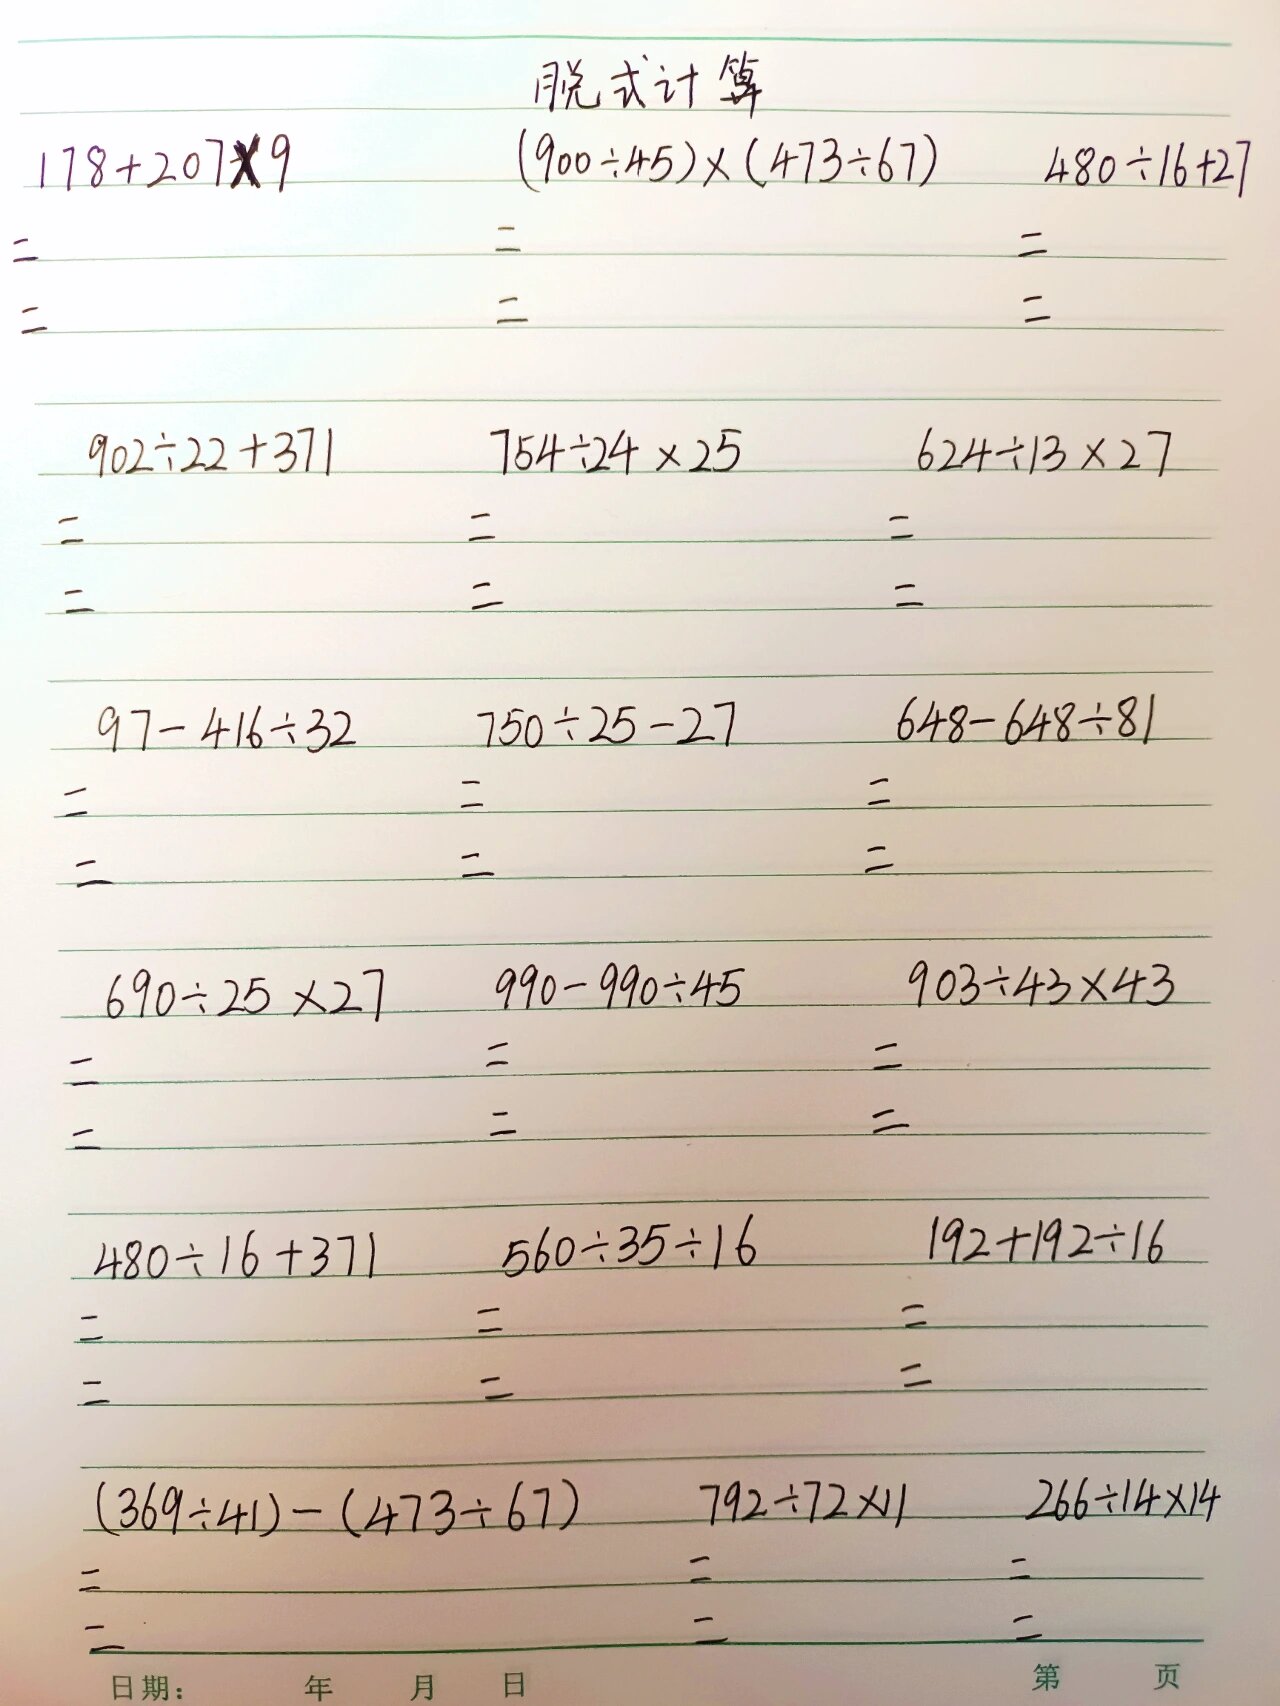 脱式计算
178+207×9 (900÷45)×(473÷67) 480÷16+27
= = =
= = =
902÷22+371 754÷24×25 624÷13×27
= = =
= = =
97-416÷32 750÷25-27 648-648÷81
= = =
= = =
690÷25×27 990-990÷45 903÷43×43
= = =
= = =
480÷16+371 560÷35÷16 192+192÷16
= = =
= = =
(369÷41)-(473÷67) 792÷72×11 266÷14×14
= = =
= = =
日期: 年 月 日 第 页